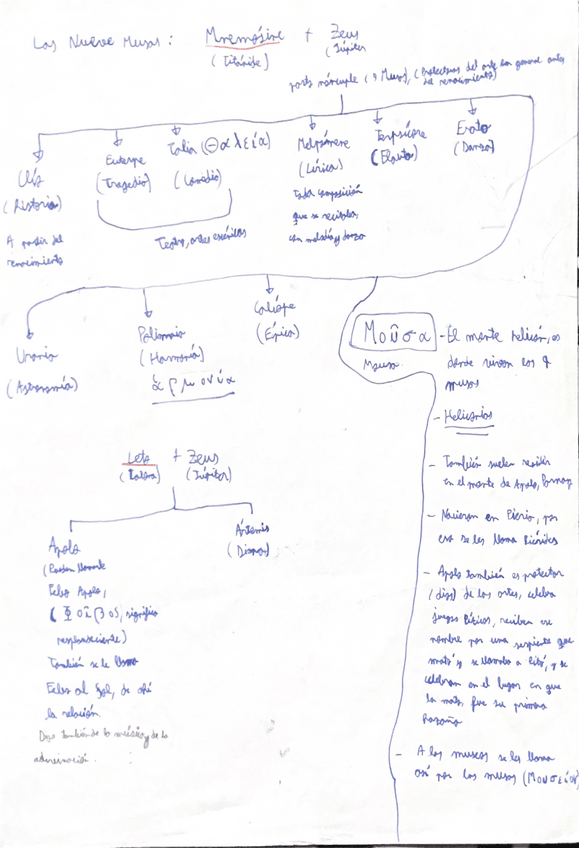 Las Nueve Musas: Mnemósine + Zeus
(Titánide) (Júpiter)
parto nónuple (9 Musas), (Protectoras del arte en general antes
del renacimiento)
Clío
(Historia)
A partir del
renacimiento
Euterpe
(Tragedia)
Talía (Θαλεία)
(Comedia)
Teatro, artes escénicas
Melpómene
(Lírica)
Toda composición
que se recitaba,
con melodía y danza
Terpsícore
(Flauta)
Erato
(Danza)
Urania
(Astronomía)
Polimnia
(Harmonía)
ἁρμονία
Calíope
(Épica)
Μοῦσα
Mousa
- El monte Helicón, es
donde vivían las 9
musas
- Heliconios
- También suelen residir
en el monte de Apolo,
- Nacieron en Pieria, por
eso se les llama Piérides
- Apolo también es protector
(dios) de las artes, celebra
juegos Píticos, reciben ese
nombre por una serpiente que
mató y se llamaba a Pitó, y se
celebran en el lugar en que
la mató, fue su primera
hazaña
- A los museos se les llama
así por las musas (Μουσεῖον)
Leto + Zeus
(Júpiter)
Apolo
Febo Apolo,
(Φοῖβος, significa
resplandeciente)
También se le llama
Febo al Sol, de ahí
la relación
Dios también de la música y de la
adivinación.
Ártemis
(Diana)